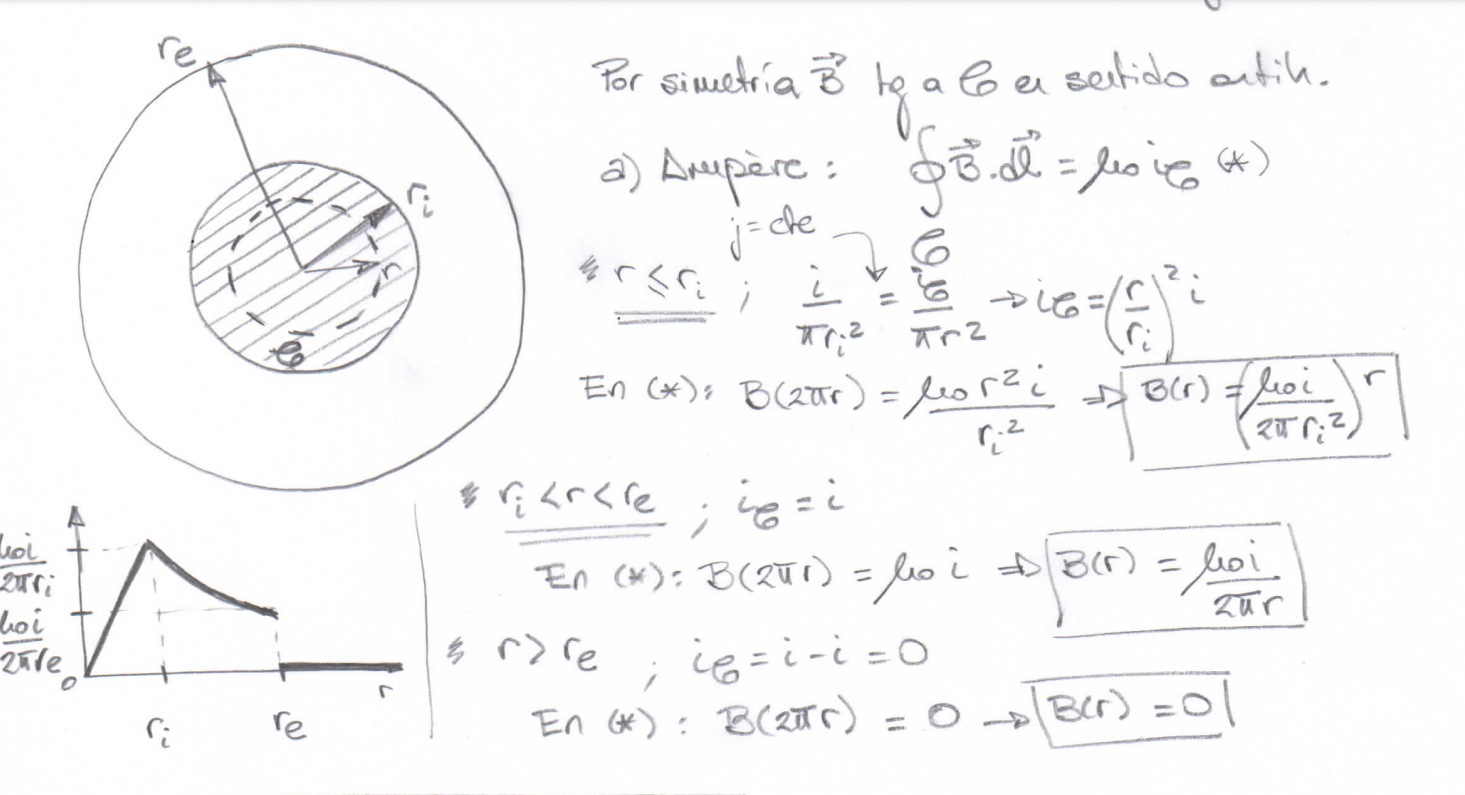 re
ri
r
C
Por simetría B⃗ tg a C en sentido antih.
a) Ampère: ∮_C B⃗.dl⃗ = μ₀ i_C (*)
j = cte
* r ≤ ri ; i/(πri²) = i_C/(πr²) → i_C = (r/ri)² i
En (*): B(2πr) = μ₀ r² i/ri² ⇒ B(r) = (μ₀i/(2πri²)) r
* ri < r < re ; i_C = i
En (*): B(2πr) = μ₀ i ⇒ B(r) = μ₀i/(2πr)
* r > re ; i_C = i-i = 0
En (*): B(2πr) = 0 → B(r) = 0
μ₀i/(2πri)
μ₀i/(2πre)
0
r
ri
re